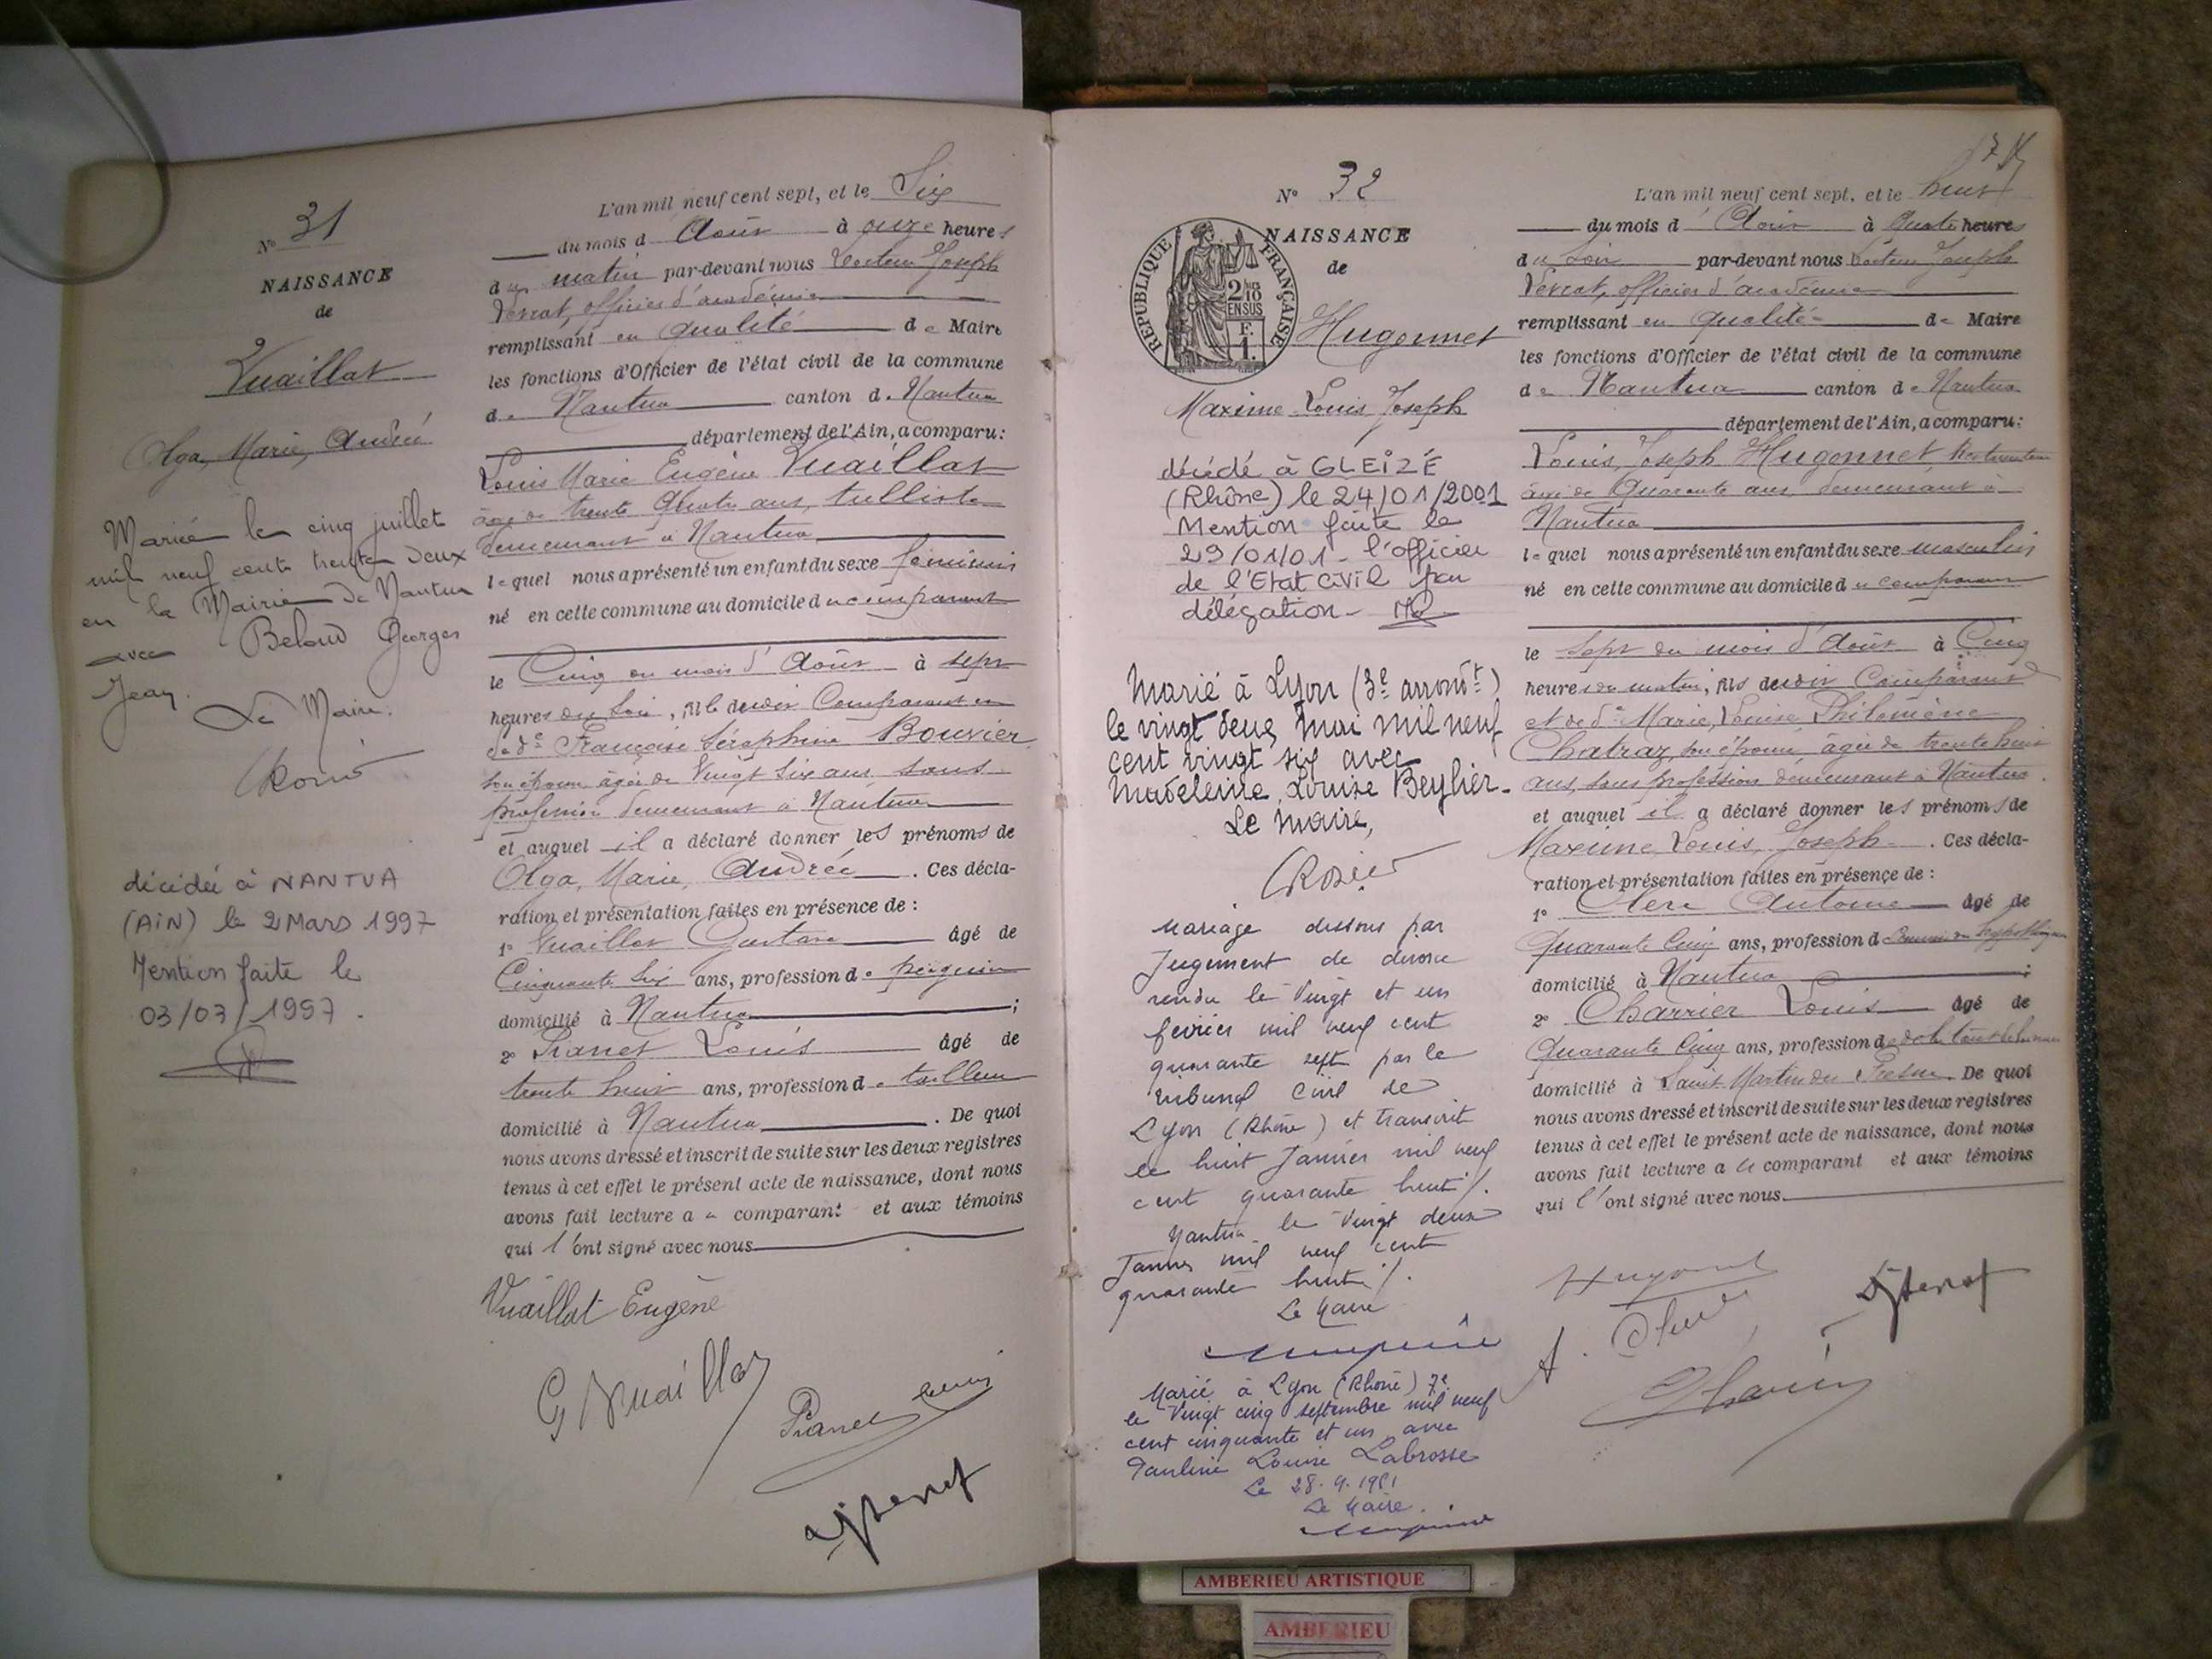 N° 31
NAISSANCE
de
Vuaillat
Olga, Marie, Andrée
Mariée le cinq juillet
mil neuf cent trente deux
en la Mairie de Nantua
avec Beloud Georges
Jean.
Le Maire.
décédée à NANTUA
(AIN) le 2 Mars 1997
Mention faite le
03/03/1997.
L'an mil neuf cent sept, et le Six
du mois d'Août à onze heures
du matin par-devant nous Docteur Joseph
Verrat, officier d'académie
remplissant en qualité de Maire
les fonctions d'Officier de l'état civil de la commune
de Nantua canton de Nantua
département de l'Ain, a comparu:
Louis Marie Eugène Vuaillat
âgé de trente quatre ans, tulliste
demeurant à Nantua
lequel nous a présenté un enfant du sexe féminin
né en cette commune au domicile du comparant
le Cinq du mois d'Août à sept
heures du soir, fille de lui Comparant et
de de Françoise Séraphine Bouvier
son épouse âgée de Vingt six ans sans
profession demeurant à Nantua
et auquel il a déclaré donner les prénoms de
Olga, Marie, Andrée. Ces décla-
ration et présentation faites en présence de:
1° Vuaillat Gustave âgé de
Cinquante six ans, profession de
domicilié à Nantua;
2° Pianet Louis âgé de
trente huit ans, profession de tailleur
domicilié à Nantua. De quoi
nous avons dressé et inscrit de suite sur les deux registres
tenus à cet effet le présent acte de naissance, dont nous
avons fait lecture au comparant et aux témoins
qui l'ont signé avec nous
Vuaillat Eugène
G Vuaillat
Pianet Louis
N° 32
NAISSANCE
de
REPUBLIQUE FRANÇAISE
2/10
EN SUS
F.
1.
Hugonnet
Maxime Louis Joseph
décédé à GLEIZÉ
(Rhône) le 24/01/2001
Mention faite le
29/01/01 - l'officier
de l'Etat civil par
délégation -
Marié à Lyon (3e arrondt)
le vingt deux mai mil neuf
cent vingt six avec
Madeleine Louise Beylier.
Le Maire,
Mariage dissous par
Jugement de divorce
rendu le Vingt et un
février mil neuf cent
quarante sept par le
tribunal Civil de
Lyon (Rhône) et transcrit
le huit Janvier mil neuf
cent quarante huit /.
Nantua le Vingt deux
Janvier mil neuf cent
quarante huit /.
Le Maire
Marié à Lyon (Rhône) 7e
le Vingt cinq septembre mil neuf
cent cinquante et un avec
Pauline Louise Labrosse
Le 28.9.1951
Le Maire.
L'an mil neuf cent sept, et le huit
du mois d'Août à quatre heures
du soir par-devant nous Docteur Joseph
Verrat, officier d'académie
remplissant en qualité de Maire
les fonctions d'Officier de l'état civil de la commune
de Nantua canton de Nantua
département de l'Ain, a comparu:
Louis, Joseph Hugonnet Restaurateur
âgé de Quarante ans demeurant à
Nantua
lequel nous a présenté un enfant du sexe masculin
né en cette commune au domicile du comparant
le Sept du mois d'Août à Cinq
heures du matin, fils de lui Comparant
et de de Marie, Louise Philomène
Chatraz, son épouse, âgée de trente huit
ans, sans profession demeurant à Nantua.
et auquel il a déclaré donner les prénoms de
Maxime, Louis, Joseph. Ces décla-
ration et présentation faites en présence de:
1° Antoine âgé de
Quarante Cinq ans, profession d
domicilié à Nantua;
2° Charrier Louis âgé de
Quarante Cinq ans, profession d
domicilié à Saint Martin du Fresne. De quoi
nous avons dressé et inscrit de suite sur les deux registres
tenus à cet effet le présent acte de naissance, dont nous
avons fait lecture a le comparant et aux témoins
qui l'ont signé avec nous
AMBERIEU ARTISTIQUE
AMBERIEU